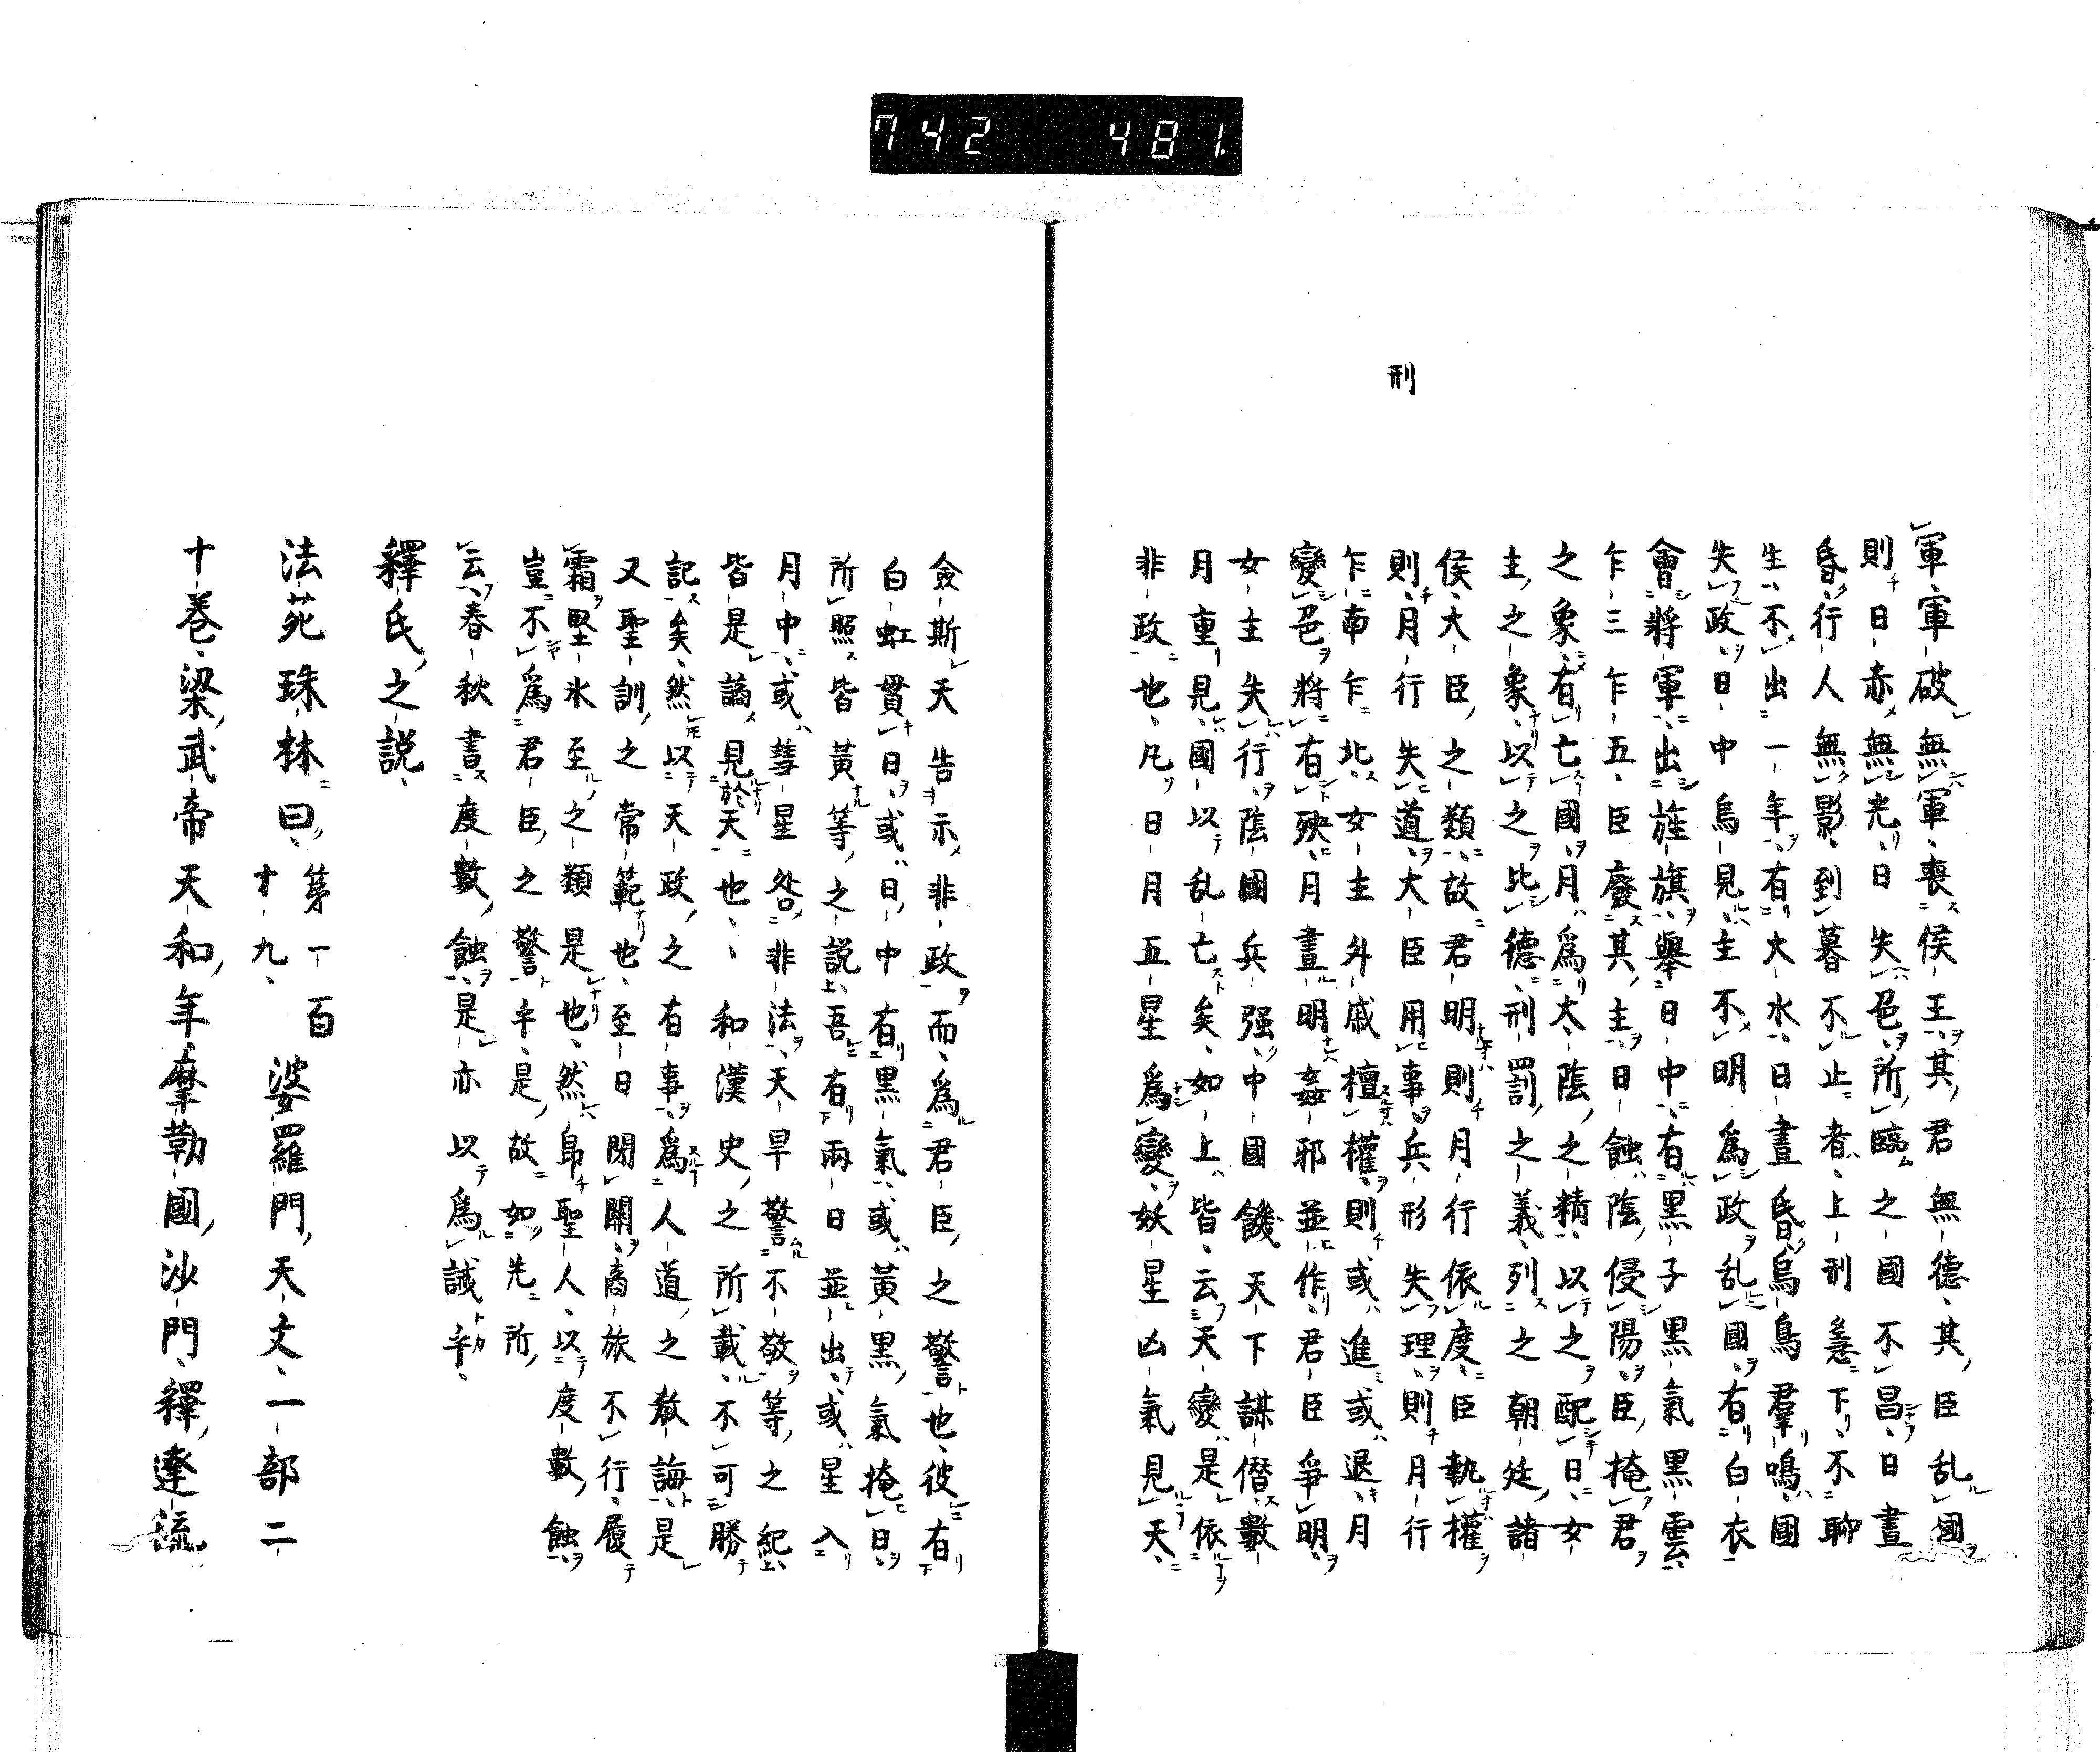 742 481.
刑
軍、軍破無軍、喪侯王、其君無德、其臣乱國
則日赤無光、日失色、所臨之國不昌、日晝
昏、行人無影、到暮不止者、上刑急下、不聊
生、不出一年、有大水、日晝昏、烏鳥羣鳴、國
失政、日中烏見、主不明爲政乱國、有白衣
會將軍、出旌旗、舉日中、有黒子黒氣黒雲、
乍三乍五、臣廢其主、日蝕、陰侵陽、臣掩君
之象、有亡國、月爲大陰之精、以之配日、女
主之象、以之比德、刑罰之義、列之朝廷、諸
侯大臣之類、故君明則月行依度、臣執權
則月行失道、大臣用事、兵形失理、則月行
乍南乍北、女主外戚檀權、則或進或退、月
變色將有殃、月晝明、姦邪並作、君臣爭明、
女主失行、陰國兵强、中國饑天下謀僭、數
月重見、國以乱亡矣、如上皆云、天變是依
非政也、凡日月五星爲變、妖星凶氣見天、
僉斯天告示非政而、爲君臣之警也、彼有
白虹貫日、或日中有黒氣、或黃黒氣掩日、
所照皆黃等之説、吾有兩日並出、或星入
月中、或彗星咎非法、天旱警不敬等之紀、
皆是謫見於天也、、和漢史之所載、不可勝
記矣、然以天政之有事、爲人道之敎誨、是
又聖訓之常範也、至日閉關、商旅不行、履
霜堅氷至之類是也、然皈聖人、以度數蝕
豈不爲君臣之警乎、是故如先所
云、春秋書度數蝕、是亦以爲誡乎、
釋氏之説、
法苑珠林曰、第一百十九、婆羅門天文、一部二
十卷、梁武帝天和年、摩勒國沙門、釋達流